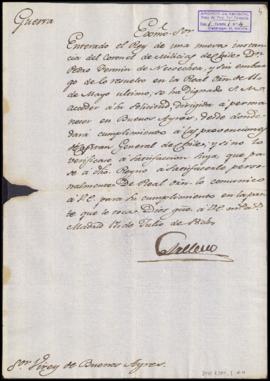 Guerra
Exmo. Sor.
Enterado el Rey de una nueva instan-
cia del Coronel de Milicias de Chile Dn.
Pedro Fermin de Necochea, y sin embar-
go de lo resuelto en la Real Orn. de
de Mayo ultimo, se ha dignado S. M.
acceder à la solicitud dirigida à perma-
necer en Buenos Ayres, desde donde
dará cumplimiento à las prevenciones
Capitan General de Chile; y si no lo
verificase à satisfaccion suya que pa-
se à dho. Reyno à satisfacerle perso-
nalmente. De Real Orn. lo comunico
à V.E. para su cumplimiento en la par-
te que le toca. Dios gue. à V.E. m.s a.s
Madrid de Julio de
Sor. Virey de Buenos Ayres.